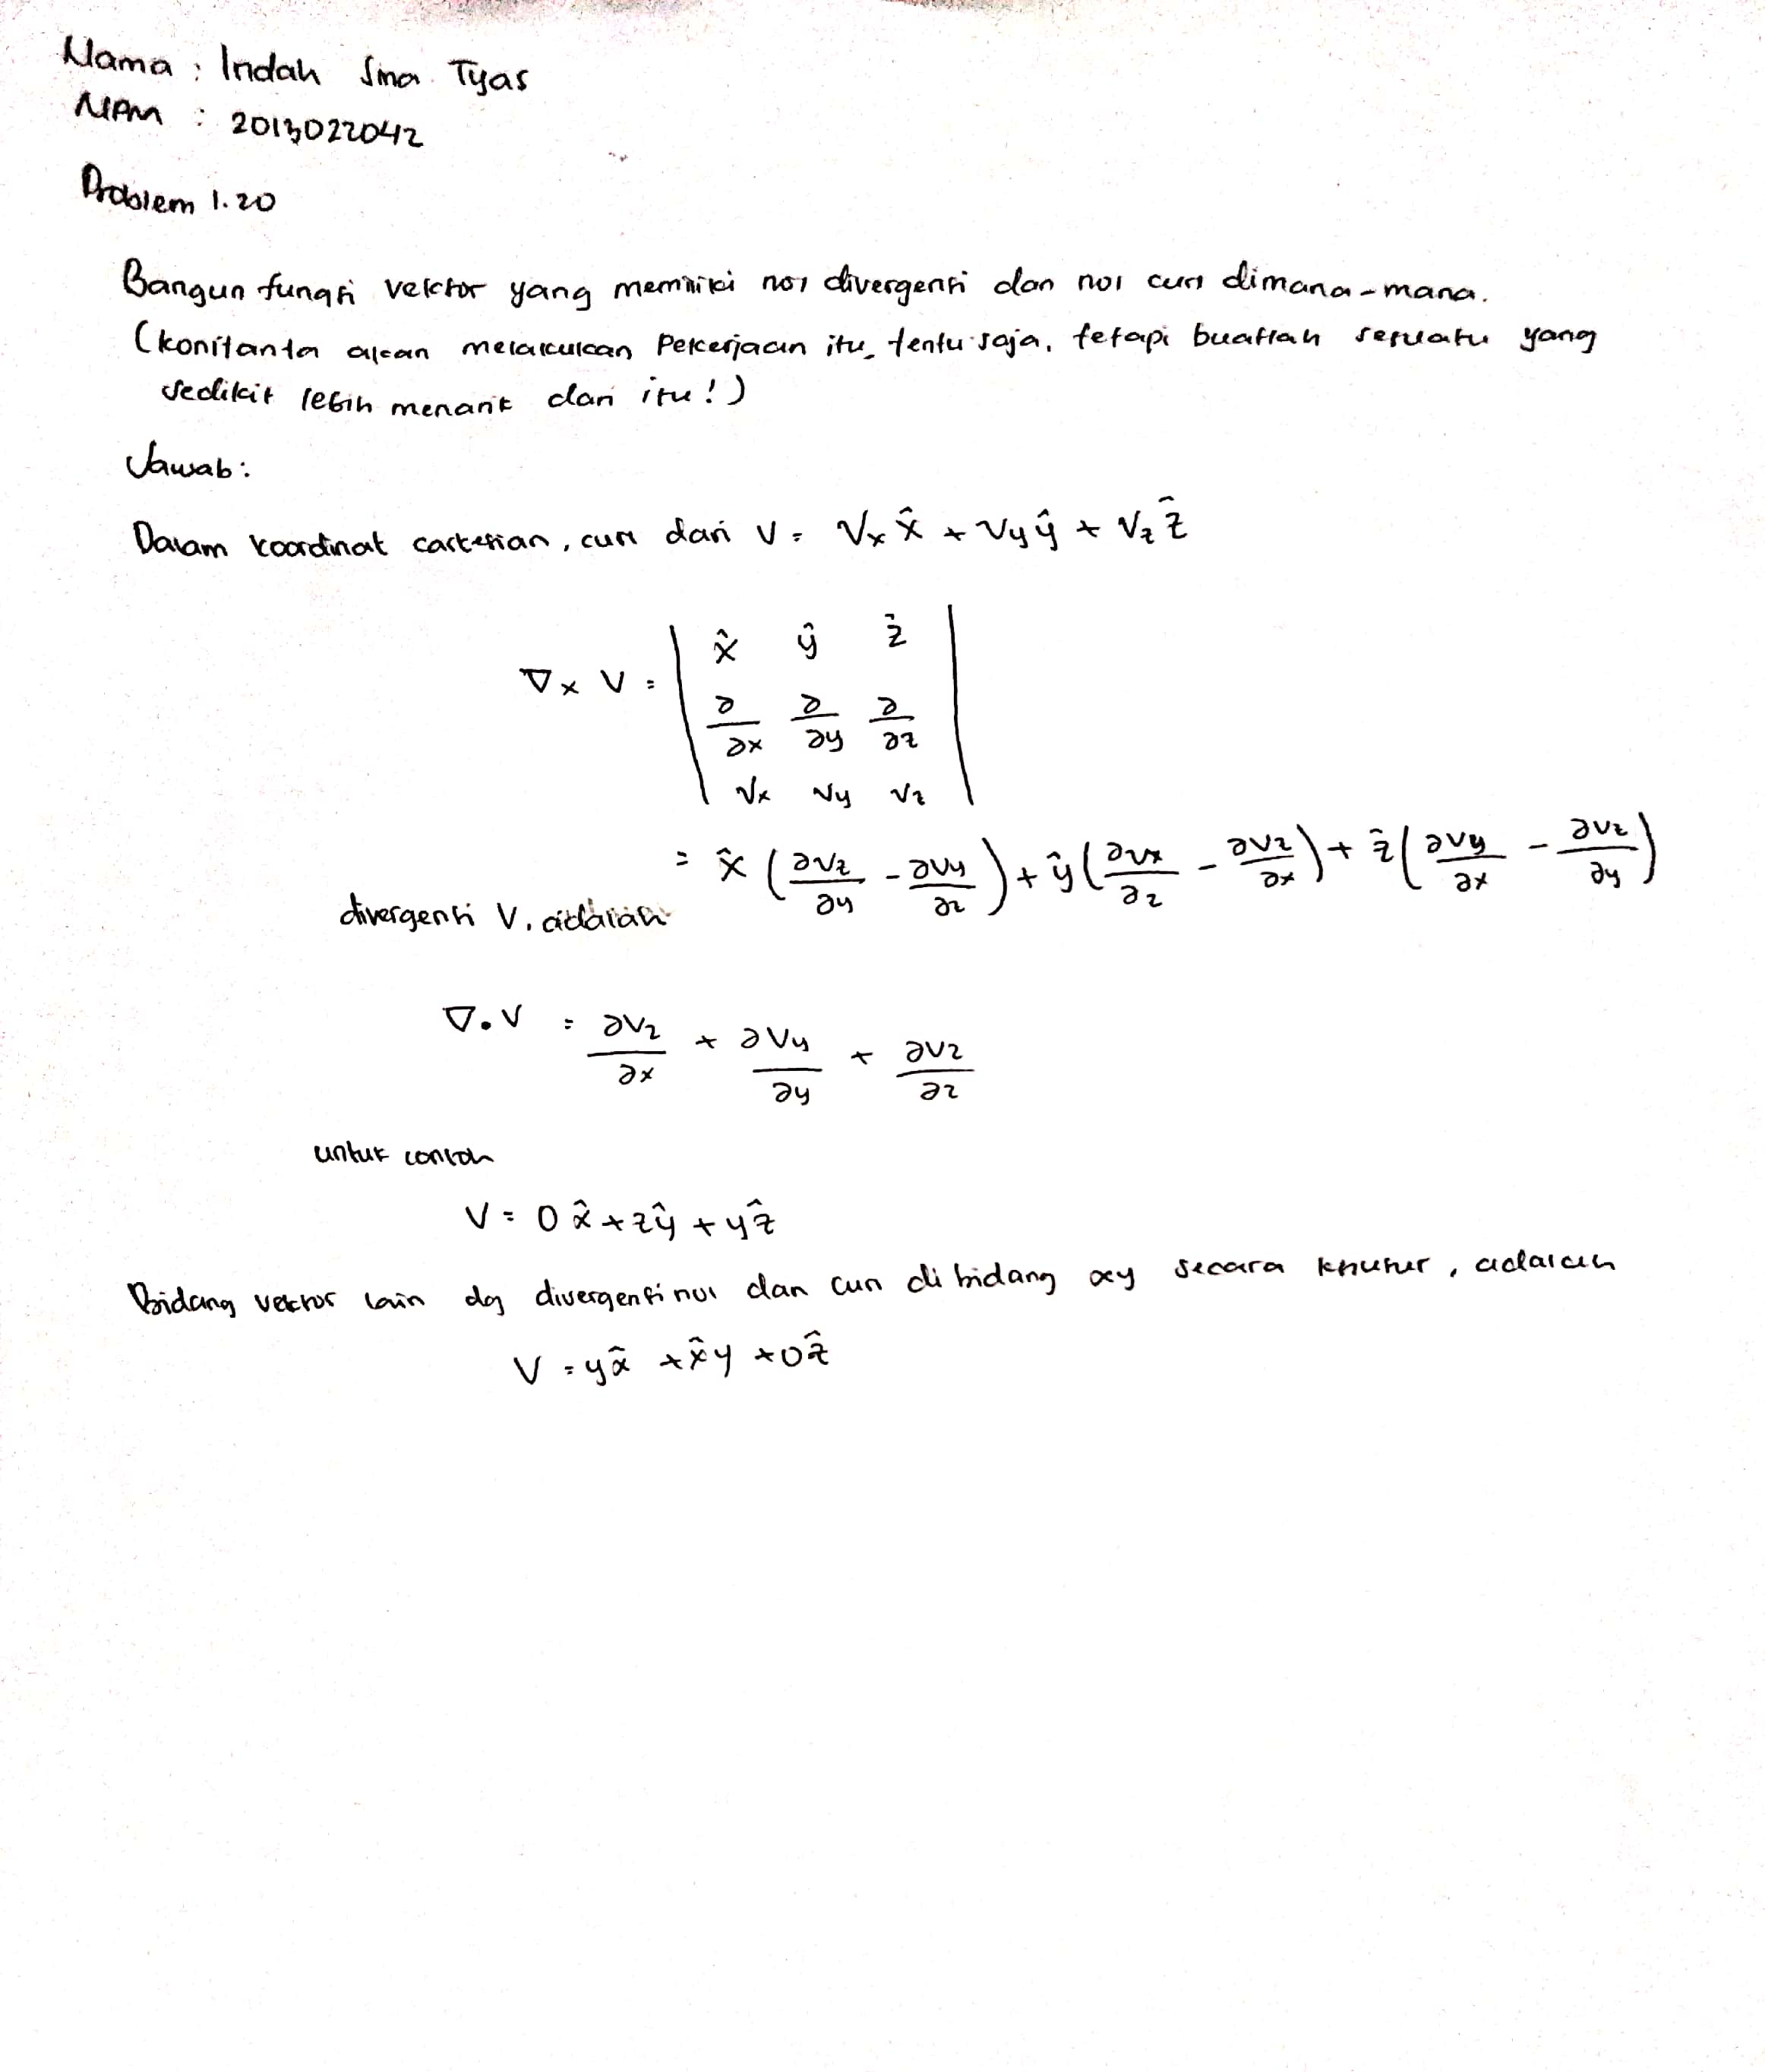 Nama : Indah Sma Tyas
NPM : 2013022042
Problem 1.20
Bangun fungsi vektor yang memiliki nol divergensi dan nol curl dimana-mana.
(konstanta akan melakukan pekerjaan itu, tentu saja, tetapi buatlah sesuatu yang
sedikit lebih menarik dari itu!)
Jawab:
Dalam koordinat cartesian, curl dari V = Vx x̂ + Vy ŷ + Vz ẑ
∇ × V = | x̂ ŷ ẑ |
| ∂/∂x ∂/∂y ∂/∂z |
| Vx Vy Vz |
= x̂ (∂Vz/∂y - ∂Vy/∂z) + ŷ (∂Vx/∂z - ∂Vz/∂x) + ẑ (∂Vy/∂x - ∂Vz/∂y)
divergensi V, adalah
∇ . V = ∂Vz/∂x + ∂Vy/∂y + ∂Vz/∂z
untuk contoh
V = 0 x̂ + z ŷ + y ẑ
Bidang vektor lain dg divergensi nol dan curl di bidang xy secara khusus, adalah
V = y x̂ + x̂ y + 0 ẑ